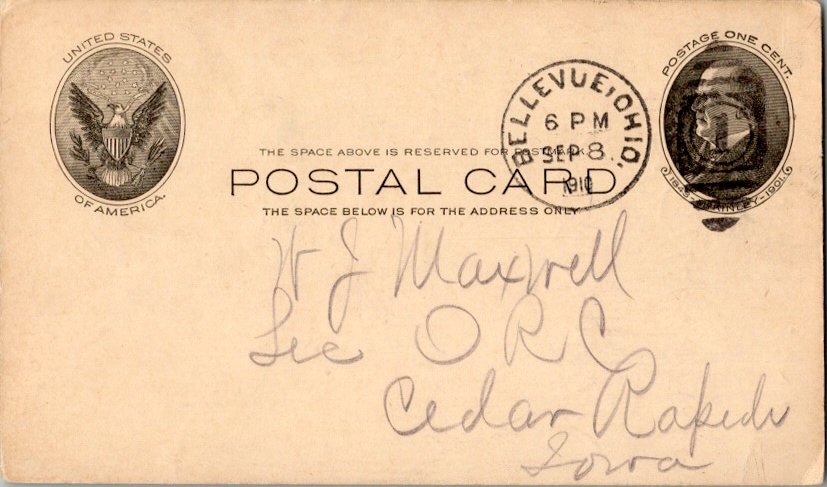 UNITED STATES
OF AMERICA.
POSTAGE ONE CENT.
1843-McKINLEY-1901.
BELLEVUE, OHIO.
6 PM
SEP 8
1910
THE SPACE ABOVE IS RESERVED FOR POSTMARK.
POSTAL CARD
THE SPACE BELOW IS FOR THE ADDRESS ONLY.
W J Maxwell
Sec O R C
Cedar Rapids
Iowa